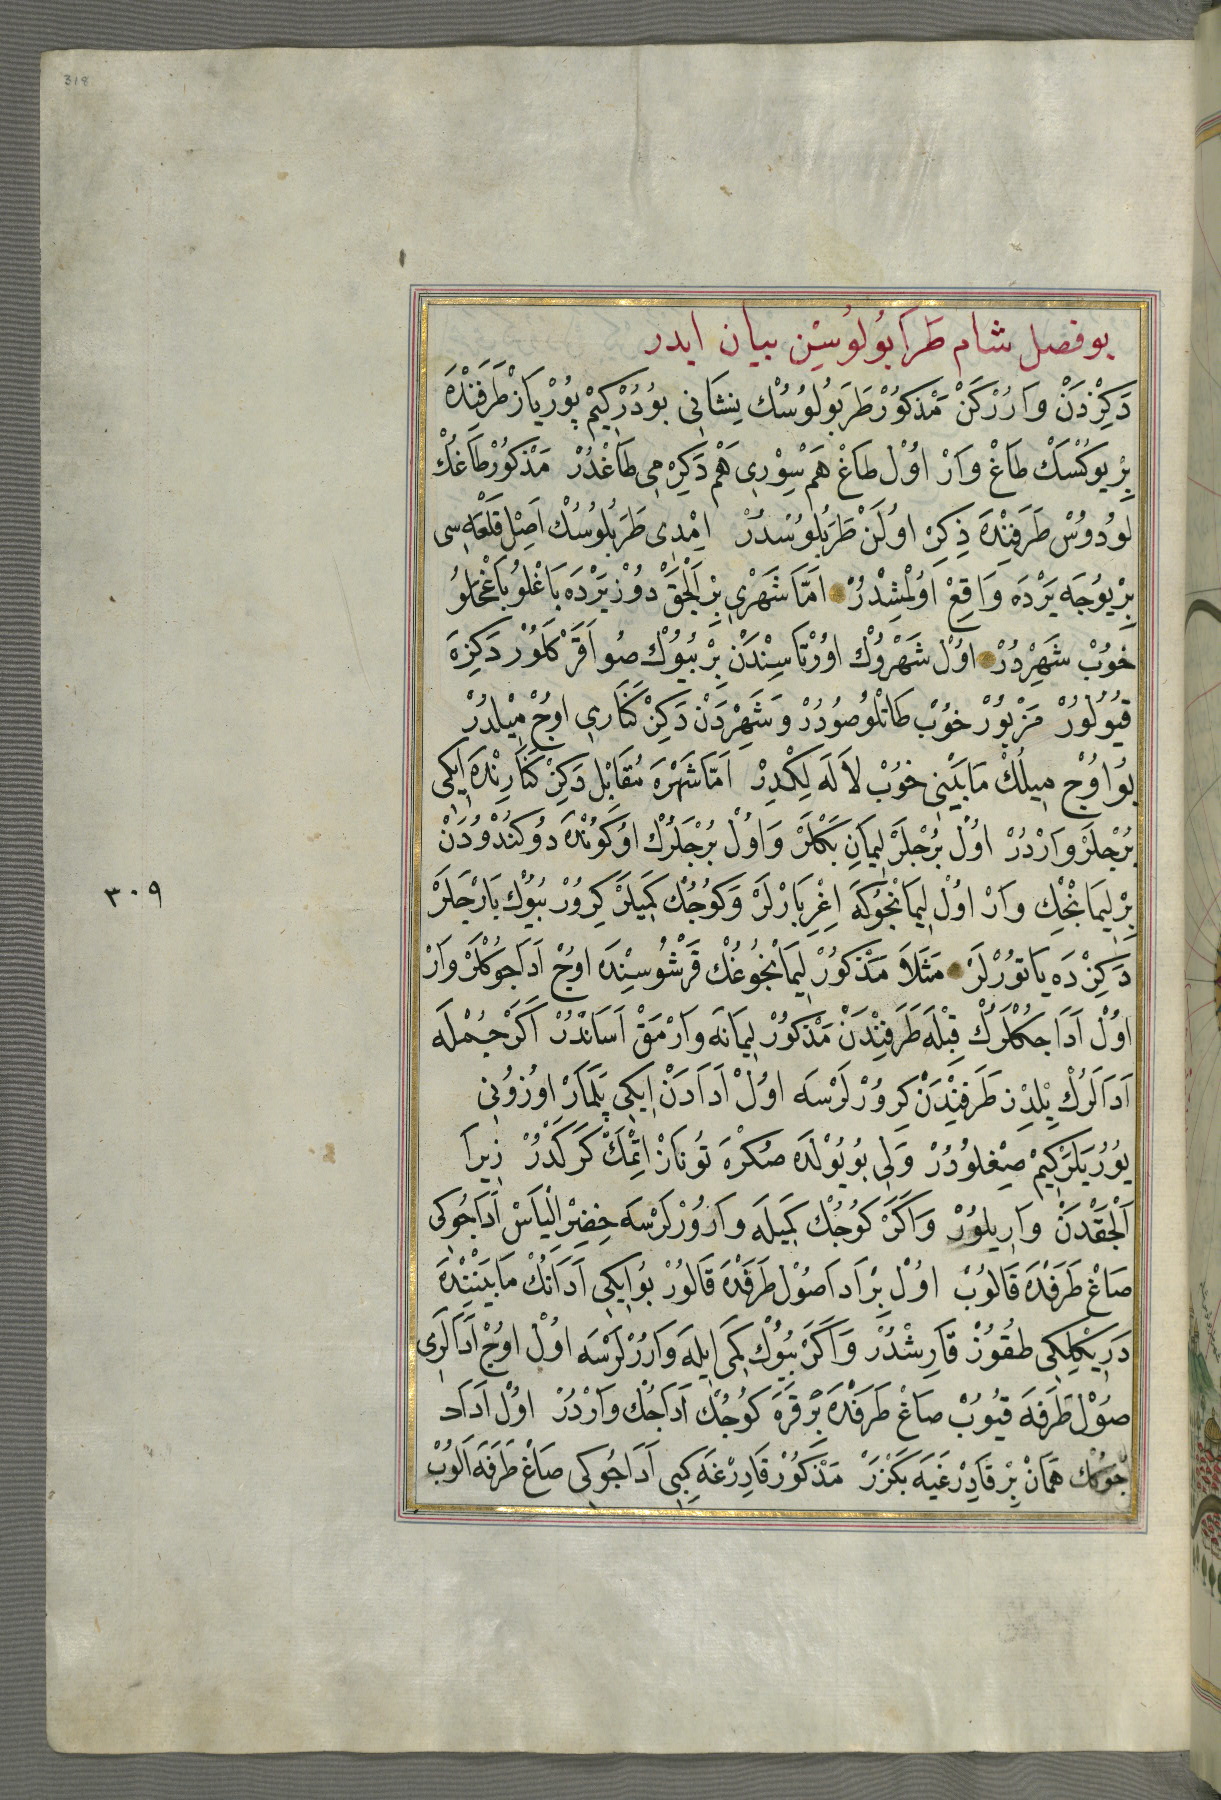 318
بو فصل شام طرابولوسین بیان ایدر
دَكِزْدَنْ وَارُرْكَنْ مَذْكُورْ طَرَبُولُوسُكْ نِشَانِی بُودُرْكِیمْ پُورْیَازْ طَرَفِنْدَه
بِرْ یوُكْسَكْ طَاغْ وَارْ اوُلْ طَاغْ هَمْ سِوْرِی هَمْ دَكِرْمِی طَاغْدُرْ مَذْكُورْ طَاغُكْ
لوُدوُسْ طَرَفِنْدَه ذِكِرْ اوُلَنْ طَرَبُلوُسْدُرْ اِمْدِی طَرَبُلوُسُكْ اَصِلْ قَلْعَه سی
بِرْ یوُجَه یَرْدَه وَاقِعْ اوُلْمِشْدُرْ اَمَّا شَهْرِی بِرْ اَلْجَقْ دوُزْ یَرْدَه بَاغْلوُ بَاغْچَلوُ
خوُبْ شَهِرْدُرْ اوُلْ شَهْرُوكْ اوُرْتَاسِنْدَنْ بِرْ بُیوُكْ صُو اَقَرْ كَلوُرْ دَكِزَه
قُیُولوُرْ مَزْبوُرْ خوُبْ طَاتْلوُ صُودُرْ وَ شَهِرْدَنْ دَكِزْ كَنَارِی اوُجْ مِیْلدُرْ
بُو اوُجْ مِیلُكْ مَابَیْنِی خوُبْ لاَلَه لِكْدِرْ اَمَّا شَهْرَه مُقَابِلْ دَكِزْ كَنَارِنْدَه اِیكِی
بُرْجلَرْ وَارْدُرْ اوُلْ بُرْجلَرْ لِیمَانِ بَكْلَرْ وَ اوُلْ بُرْجلَرُكْ اوُكوُنْدَه دوُكَنْدوُدَنْ
بِرْ لِیمَانْجِكْ وَارْ اوُلْ لِیمَانْجُوكَه اِغْرِبَارْلَرْ وَ كوُجُكْ كَمِیلَرْ كِرُورْ بُیوُكْ بَارْجَلَرْ
دَكِزْدَه یَاتوُرْلَرْ مَثَلاَ مَذْكوُرْ لِیمَانْجُوغُكْ قَرْشُوسِنْدَه اوُجْ اَدَاجوُكْلَرْ وَارْ
اوُلْ اَدَاجكْلَرُكْ قِبْلَه طَرَفِنْدَنْ مَذْكوُرْ لِیمَانَه وَارْمَقْ اَسَانْدُرْ اَكَرْ جُمْلَه
اَدَالَرُكْ یِلْدِز طَرَفِنْدَنْ كِرُورْلَرْسَه اوُلْ اَدَادَنْ اِیكِی پَلَمَارْ اوُزوُنِی
یوُرُیَلَرْكِیمْ صِیغْلوُدُرْ وَلِی بُو یوُلْدَه صُكْرَه تُونَازْ اِتْمَكْ كَرَكْدُرْ زِیرَا
اَلْجَقْدَنْ وَارِیلوُرْ وَ اَكَرْ كوُجُكْ كَمِیلَه وَارُورْلَرْسَه خِضِرْ اِلْیَاسْ اَدَاجُوكی
صَاغْ طَرَفْدَه قَالوُبْ اوُلْ بِرْ اَدَا صُولْ طَرَفْدَه قَالوُرْ بُو اِیكِی اَدَانُكْ مَابَیْنِنْدَه
دَرِیكْلِكی طُقوُزْ قَارِشْدُرْ وَ اَكَرْ بُیوُكْ كَمِی اِیلَه وَارُرْلَرْسَه اوُلْ اوُجْ اَدَالَرِی
صُولْ طَرَفَه قُیُوبْ صَاغْ طَرَفْدَه بِرْ قَرَه كوُجُكْ اَدَاجُكْ وَارْدُرْ اوُلْ اَدَا
جوُكْ هَمَانْ بِرْ قَادِرْغَیَه بَكْزَرْ مَذْكوُرْ قَادِرْغَه كِبِی اَدَاجُوكی صَاغْ طَرَفَه اَلوُبْ
٣٠٩